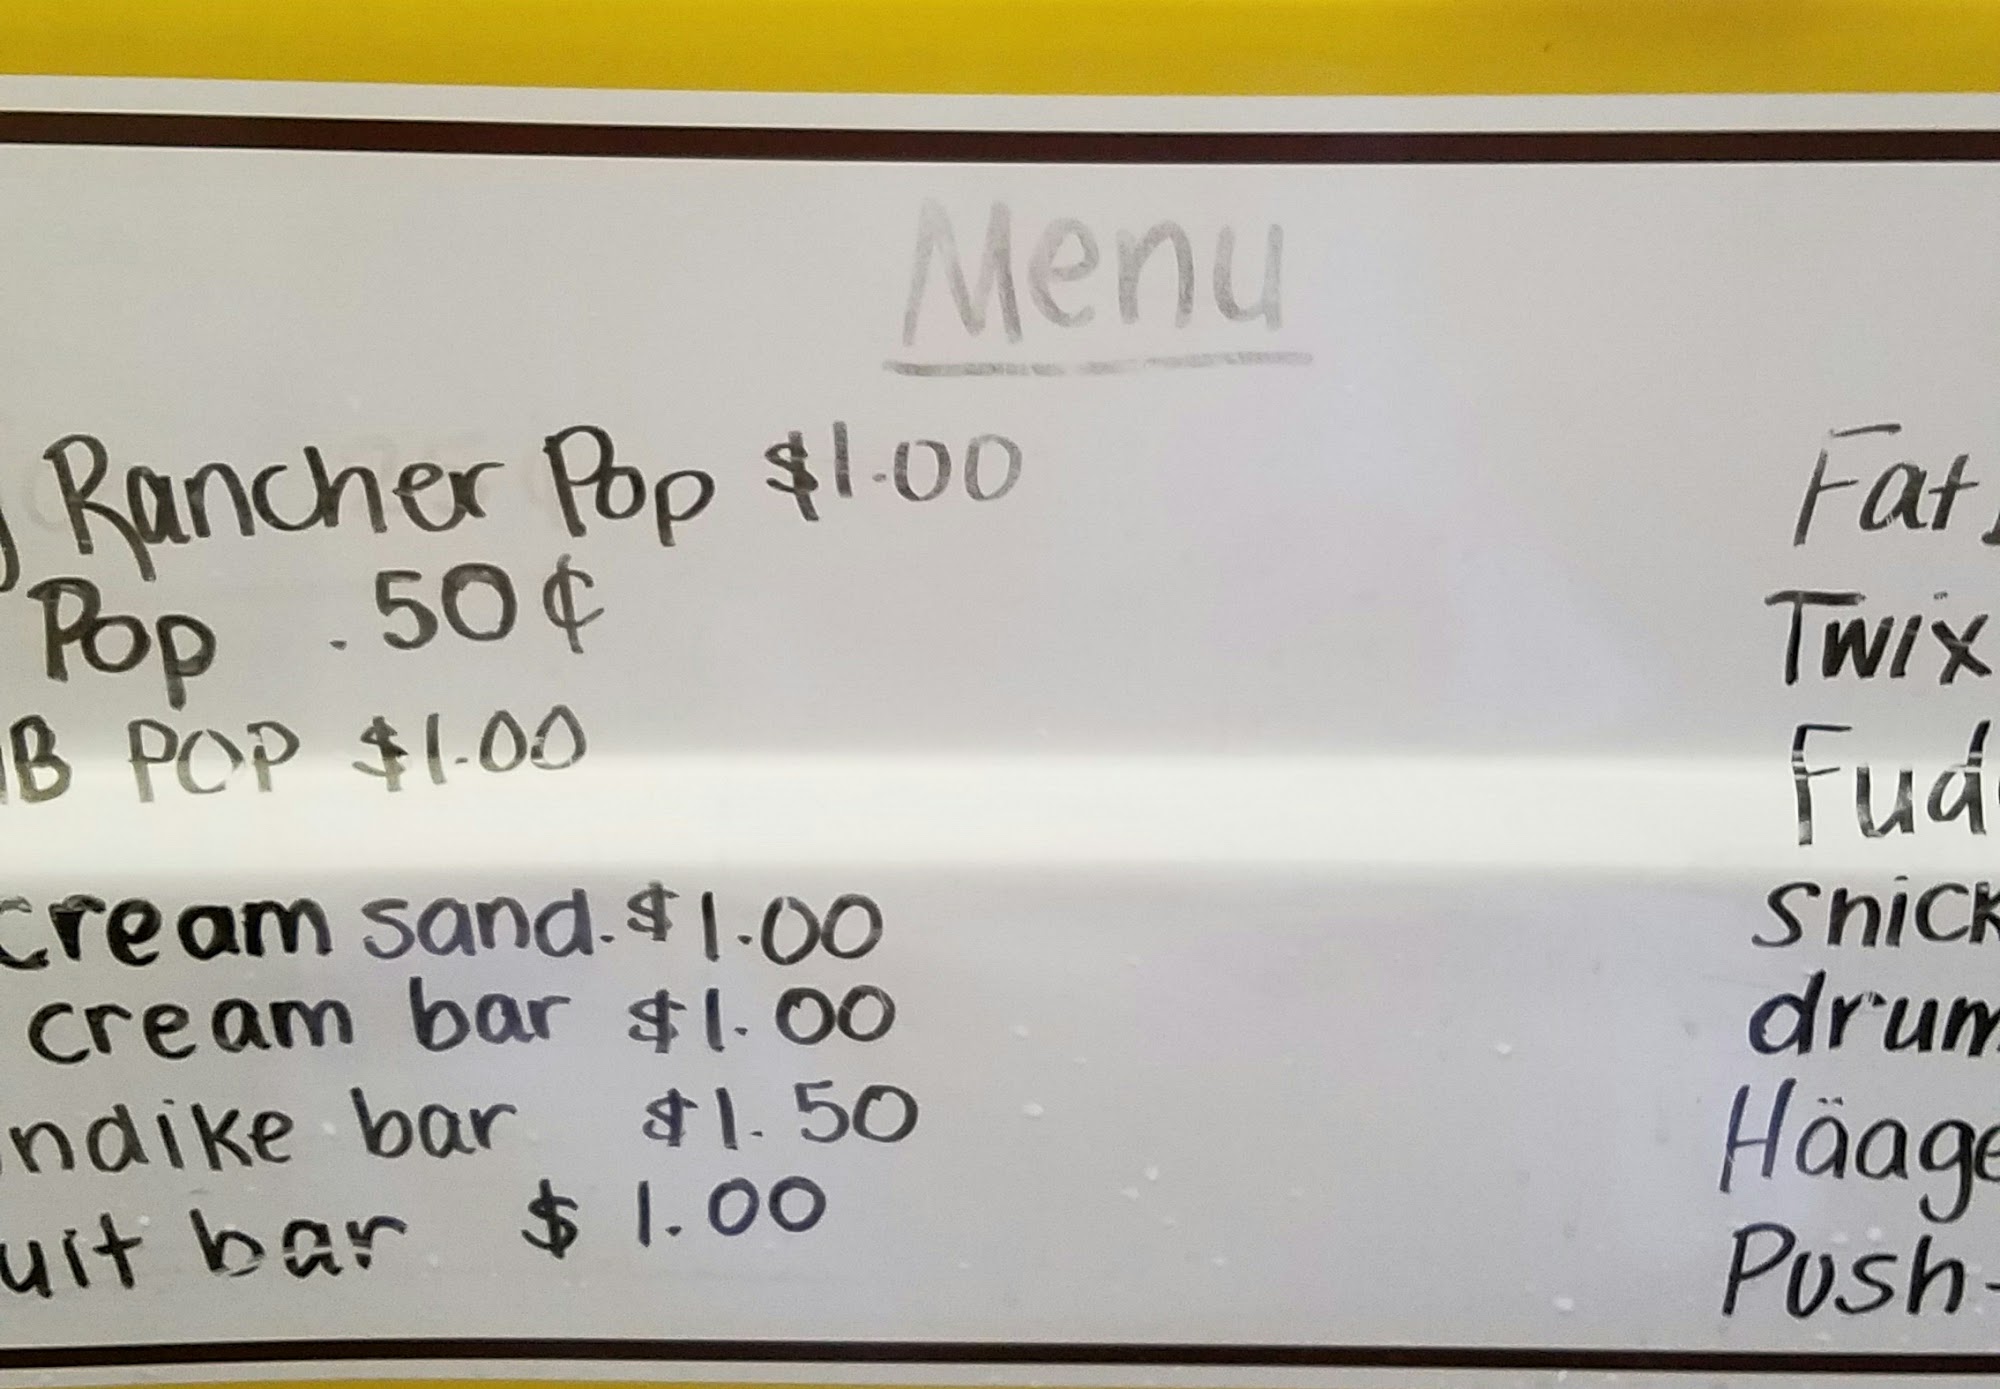 Menu
Rancher Pop $1.00
Pop .50¢
B POP $1.00
cream sand. $1.00
cream bar $1.00
ndike bar $1.50
uit bar $1.00
Fat
Twix
Fud
snick
drum
Häage
Push-